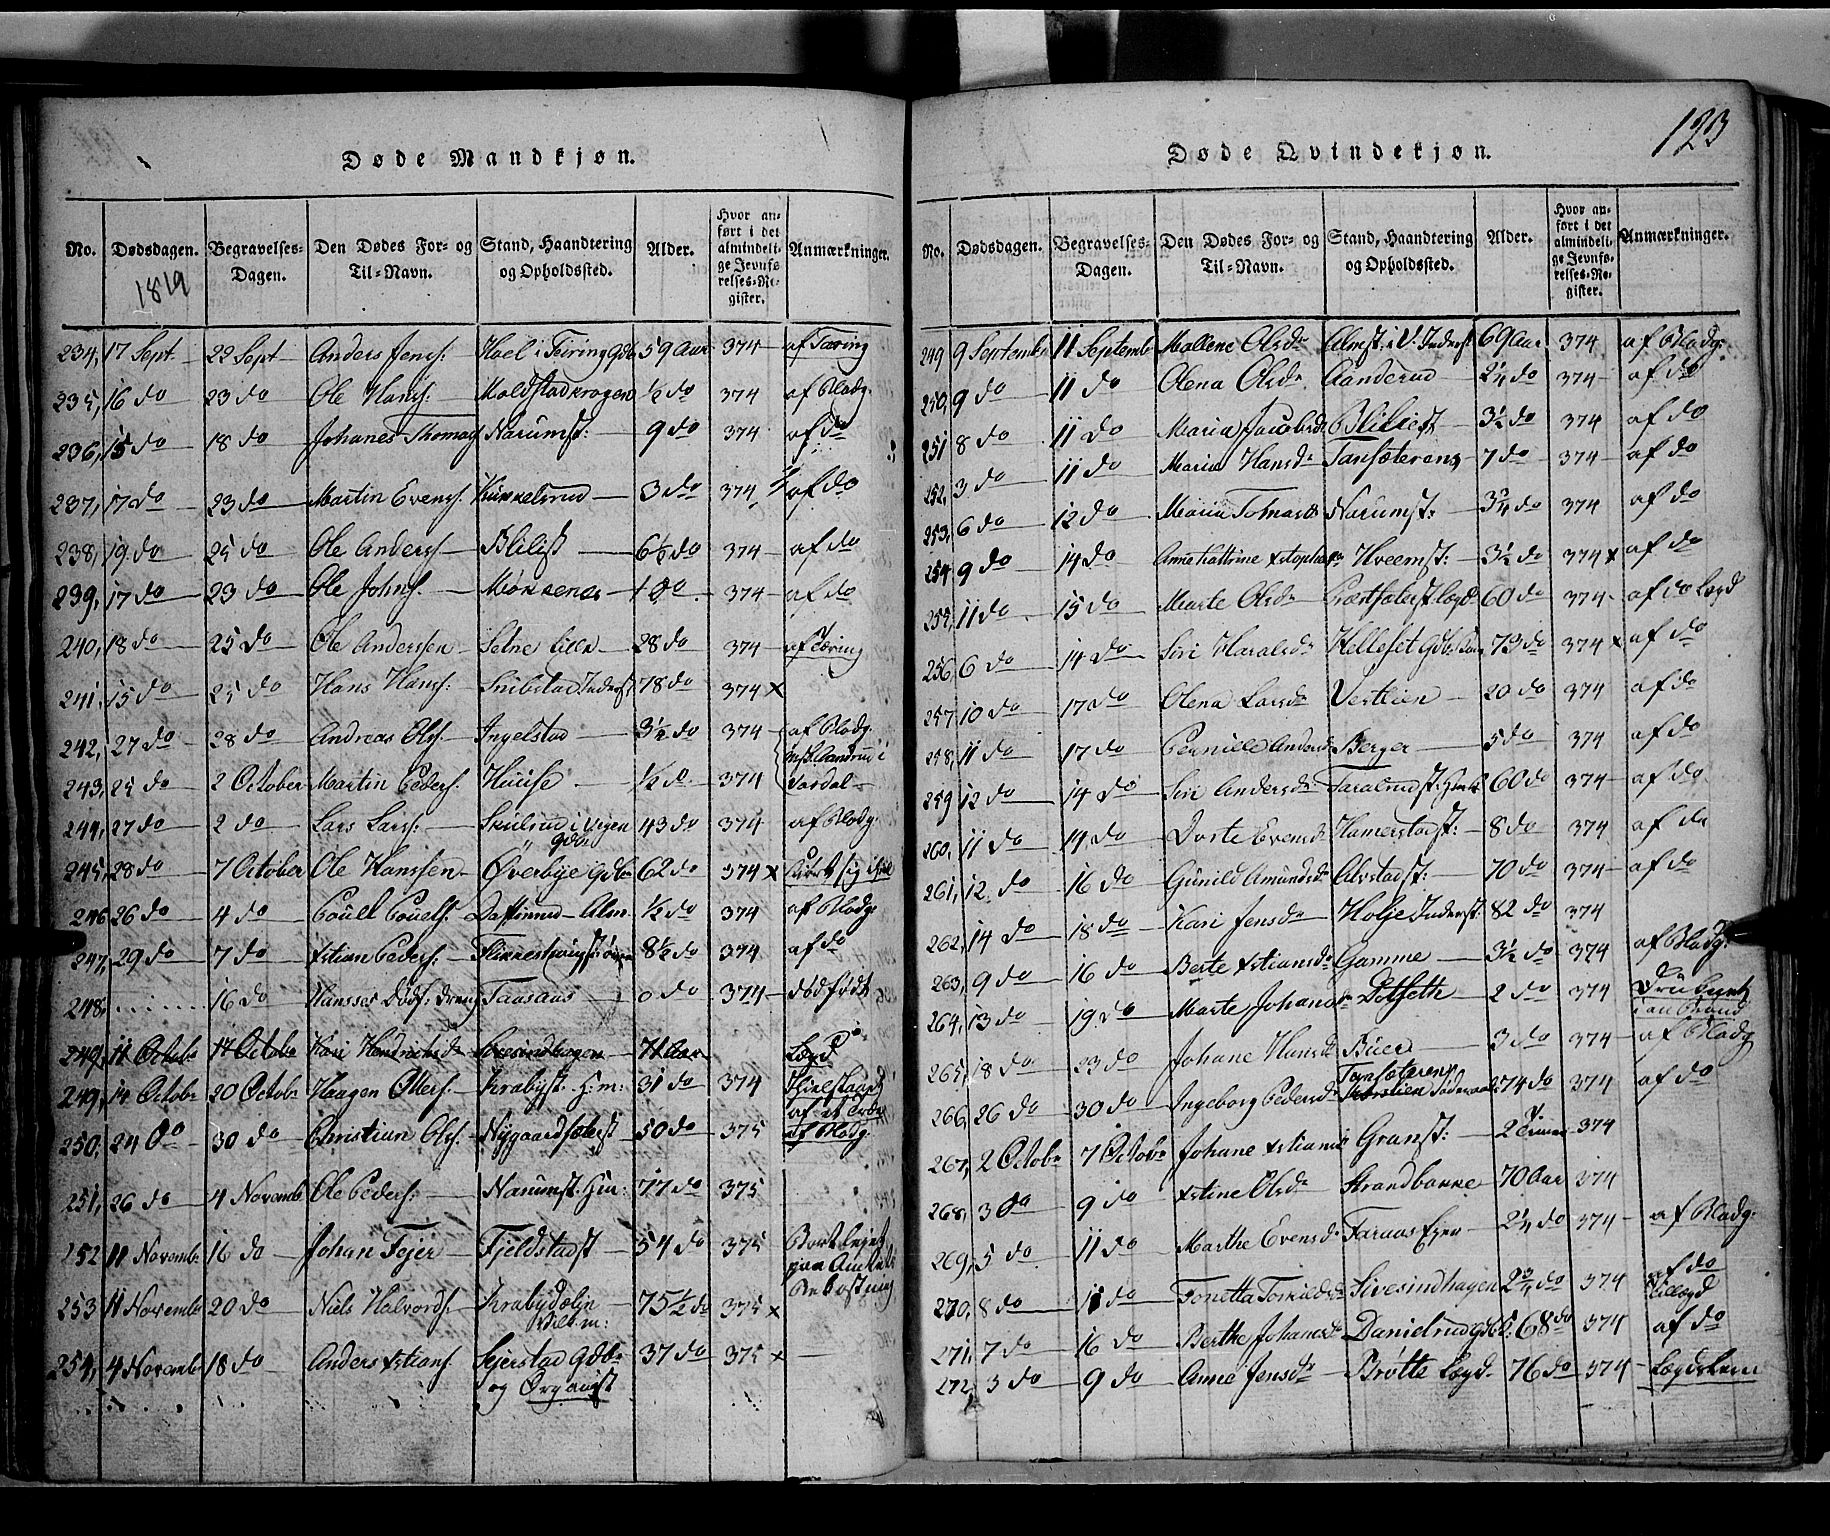 123
Døde Mandkjøn.
No. Dødsdagen. Begravelses-Dagen. Den Dødes For- og Til-Navn. Stand, Haandtering og Opholdssted. Alder. Hvor anført i det almindelige Jevnførelses-Register. Anmærkninger.
1819
234, 17 Sept. 22 Sept Anders Jens: Hoel i Feiring Gdb 59 Aar 374 af Tæring
235, 16 do 23 do Ole Hans: Moldstadkrogen ½ do 374 af Blodg:
236, 15 do 18 do Johanes Thomas Narumst: 9 do 374 af do
237, 17 do 23 do Martin Evens. Kukkelsrud 3 do 374 af do
238, 19 do 25 do Ole Anders. Blilist 6½ do 374 af do
239, 17 do 23 do Ole Johns. 1 do 374 af do
240, 18 do 25 do Ole Anderssen Selne 28 do 374 af Tæring
241, 15 do 25 do Hans Hans: Snibstad Inderst 78 do 374 x
242, 27 do 28 do Andreas Ols. Ingelstad 3½ do 374 af Blodg:
243, 25 do 2 October Martin Peders. Huuse ½ d. 374 Vardal
244, 27 do 2 do Lars Lars: Skulrud i Gdbr 43 do 374 af Blodg:
245, 28 do 7 October Ole Hanssen Øverbye Gdbr 62 do 374 x
246 26 do 4 do Pouel Pouels. Alm. ½ do 374 af Blodg:
247, 29 do 7 do xstian Peders. 8½ do 374 af do
248, 16 do Hansses Dødf: dreng Taasaas 0 do 374 dødfødt
249, 11 Octobr 17 Octobr Kari Hendrichsdr Sivesindhagen 71 Aar Lægd
249, 14 Octobr 20 Octobr Haagen Olters. Krabyst. Hm: 31 do 374 af et Træe
250, 24 do 30 do Christian Ols. Nygaardsæterst 50 do 375 af Blodg:
251, 26 do 4 Novembr Ole Peders: Narumst. Hm: 77 do 375
252 11 Novembr 16 do Johan Fejer Fjeldstadst 54 do 375
253 11 Novembr 20 do Niels Halvords. Krabydælin 75½ do 375 x
254, 4 Novembr 18 do Anders xstians. Sejerstad Gdbr 37 do 375 x
og
Døde Qvindekjøn.
No. Dødsdagen. Begravelses-Dagen. Den Dødes For- og Til-Navn. Stand, Haandtering og Opholdssted. Alder. Hvor anført i det almindelige Jevnførelses-Register. Anmærkninger.
249 9 Septembr 11 Septembr Mallene Olsdr Almst: i V: Inderst 69 Aar 374 af Blodg:
250, 9 do 11 do Olena Olsdr Aanderud 2¼ do 374 af do
251 8 do 11 do Maria Jacobsdr Bliliest 3½ do 374 af do
252, 3 do 11 do Maria Hansdr Tansæterens 7 do 374 af do
253, 6 do 12 do Maria Tomasdr Narumst: 3¾ do 374 af do
254 9 do 14 do Anne Kattrine xstophersdr Hveemst: 3½ do 374 x af do
255, 11 do 15 do Marte Olsdr Præstsæterst Lægd 60 do 374 af do Lægd
256, 6 do 14 do Siri Haralsdr Helleset Gdbr 73 do 374 x af do
257, 10 do 17 do Olena Larsdr Vestlien 20 do 374 af do
258, 11 do 17 do Pernille Andersdr Berger 5 do 374 af do
259 12 do 14 do Siri Andersdr Faralrudst: 60 do 374 af do
260, 11 do 19 do Dorte Evensdr Hamerstadst: 8 do 374 af do
261, 12. do 16 do Gunild Amundsdr Alvstadst: 70 do 374 af do
262, 14 do 18 do Kari Jensdr Holje Inderst: 82 do 374
263, 9 do 16 do Berte xstiansdr Gamme 3½ do 374 af Blodg:
264, 13 do 19. do Marte Johansdr Dotseth 2 do 374 Druknet i en Brønd
265, 18 do 23 do Johane Hansdr Büer 3 do 374 af Blodg
266, 26 do 30 do Ingeborg Pedersdr Tansæterens 274 do 374 af do
267, 2 Octobr 7 Octobr Johane xstiansdr Granst: 2 Timer 374
268, 3 do 9 do xstine Olsdr Strandbakke 70 Aar 374
269, 5 do 11 do Marthe Evensdr Faraas Eyer 2¼ do 374 af Blodg:
270, 8 do 11 do Tonetta Tomedr Sivesindhagen 2¾ do 374 af do
271, 7 do 16 do Berthe Johansdr Danielrud 68 do 374 af do
272, 3 do 9 do Anne Jensdr Brøtte Lægd 76 do 374 Lægdslem